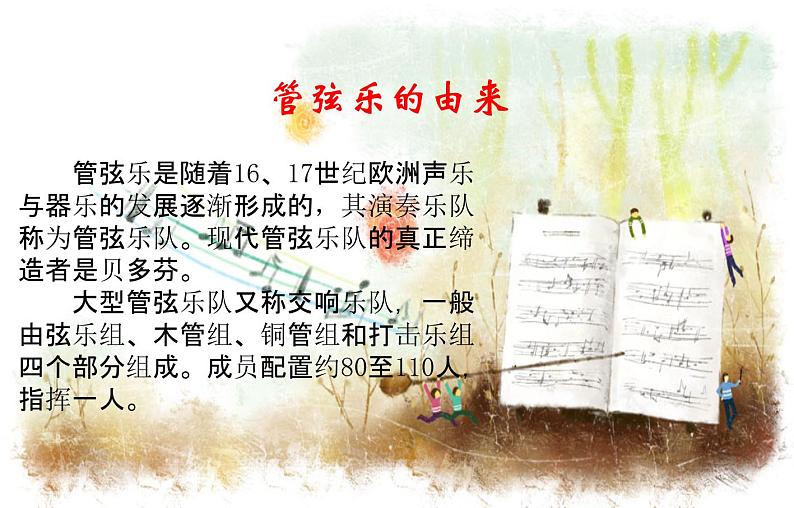 管弦乐的由来
管弦乐是随着16、17世纪欧洲声乐
与器乐的发展逐渐形成的，其演奏乐队
称为管弦乐队。现代管弦乐队的真正缔
造者是贝多芬。
大型管弦乐队又称交响乐队，一般
由弦乐组、木管组、铜管组和打击乐组
四个部分组成。成员配置约80至110人，
指挥一人。